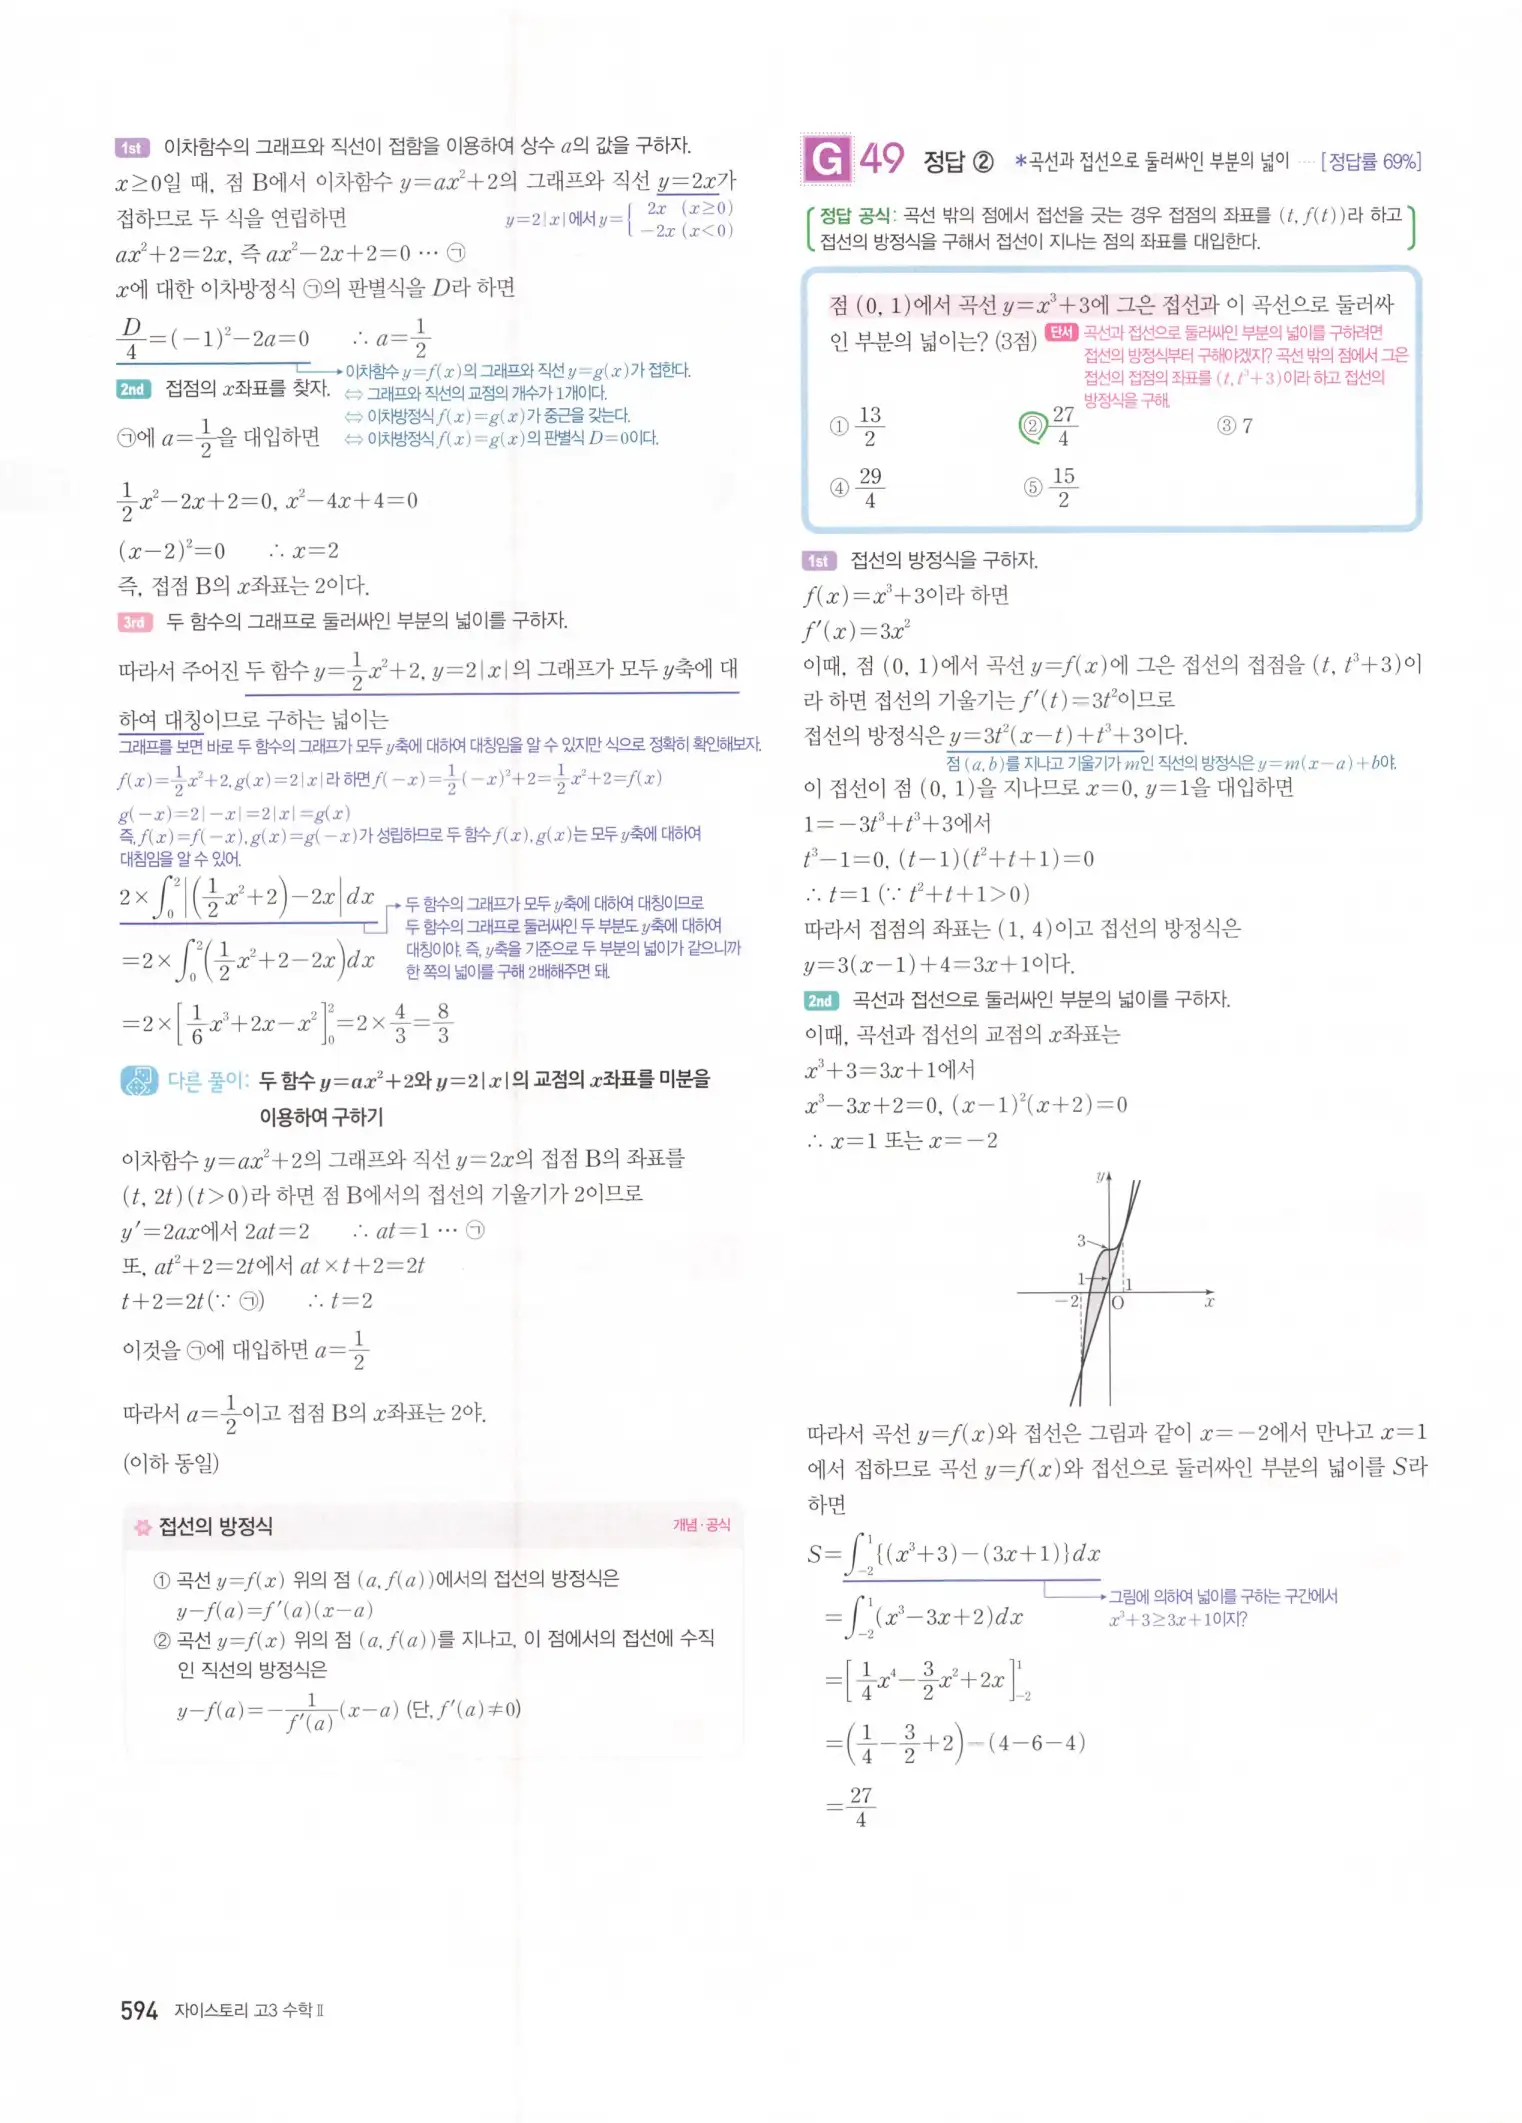 1st 이차함수의 그래프와 직선이 접함을 이용하여 상수 a의 값을 구하자.
x≥0일 때, 점 B에서 이차함수 y=ax²+2의 그래프와 직선 y=2x가
접하므로 두 식을 연립하면
y=2|x|에서 y={ 2x (x≥0)
−2x (x<0)
ax²+2=2x, 즉 ax²−2x+2=0 ··· ㉠
x에 대한 이차방정식 ㉠의 판별식을 D라 하면
D/4=(−1)²−2a=0 ∴ a=1/2
이차함수 y=f(x)의 그래프와 직선 y=g(x)가 접한다.
⇔ 그래프와 직선의 교점의 개수가 1개이다.
⇔ 이차방정식 f(x)=g(x)가 중근을 갖는다.
⇔ 이차방정식 f(x)=g(x)의 판별식 D=0이다.
2nd 접점의 x좌표를 찾자.
㉠에 a=1/2을 대입하면
1/2x²−2x+2=0, x²−4x+4=0
(x−2)²=0 ∴ x=2
즉, 접점 B의 x좌표는 2이다.
3rd 두 함수의 그래프로 둘러싸인 부분의 넓이를 구하자.
따라서 주어진 두 함수 y=1/2x²+2, y=2|x|의 그래프가 모두 y축에 대
하여 대칭이므로 구하는 넓이는
그래프를 보면 바로 두 함수의 그래프가 모두 y축에 대하여 대칭임을 알 수 있지만 식으로 정확히 확인해보자.
f(x)=1/2x²+2, g(x)=2|x|라 하면 f(−x)=1/2(−x)²+2=1/2x²+2=f(x)
g(−x)=2|−x|=2|x|=g(x)
즉, f(x)=f(−x), g(x)=g(−x)가 성립하므로 두 함수 f(x), g(x)는 모두 y축에 대하여
대칭임을 알 수 있어.
2×∫₀²|(1/2x²+2)−2x|dx
두 함수의 그래프가 모두 y축에 대하여 대칭이므로
두 함수의 그래프로 둘러싸인 두 부분도 y축에 대하여
대칭이야. 즉, y축을 기준으로 두 부분의 넓이가 같으니까
한 쪽의 넓이를 구해 2배해주면 돼.
=2×∫₀²(1/2x²+2−2x)dx
=2×[1/6x³+2x−x²]₀²=2×4/3=8/3
다른 풀이: 두 함수 y=ax²+2와 y=2|x|의 교점의 x좌표를 미분을
이용하여 구하기
이차함수 y=ax²+2의 그래프와 직선 y=2x의 접점 B의 좌표를
(t, 2t)(t>0)라 하면 점 B에서의 접선의 기울기가 2이므로
y′=2ax에서 2at=2 ∴ at=1 ··· ㉠
또, at²+2=2t에서 at×t+2=2t
t+2=2t(∵ ㉠) ∴ t=2
이것을 ㉠에 대입하면 a=1/2
따라서 a=1/2이고 접점 B의 x좌표는 2야.
(이하 동일)
접선의 방정식 개념·공식
① 곡선 y=f(x) 위의 점 (a, f(a))에서의 접선의 방정식은
y−f(a)=f′(a)(x−a)
② 곡선 y=f(x) 위의 점 (a, f(a))를 지나고, 이 점에서의 접선에 수직
인 직선의 방정식은
y−f(a)=−1/f′(a)(x−a) (단, f′(a)≠0)
594 자이스토리 고3 수학 Ⅱ
G 49 정답 ② *곡선과 접선으로 둘러싸인 부분의 넓이 ···· [정답률 69%]
정답 공식: 곡선 밖의 점에서 접선을 긋는 경우 접점의 좌표를 (t, f(t))라 하고
접선의 방정식을 구해서 접선이 지나는 점의 좌표를 대입한다.
점 (0, 1)에서 곡선 y=x³+3에 그은 접선과 이 곡선으로 둘러싸
인 부분의 넓이는? (3점)
단서 곡선과 접선으로 둘러싸인 부분의 넓이를 구하려면
접선의 방정식부터 구해야겠지? 곡선 밖의 점에서 그은
접선의 접점의 좌표를 (t, t³+3)이라 하고 접선의
방정식을 구해.
① 13/2 ② 27/4 ③ 7
④ 29/4 ⑤ 15/2
1st 접선의 방정식을 구하자.
f(x)=x³+3이라 하면
f′(x)=3x²
이때, 점 (0, 1)에서 곡선 y=f(x)에 그은 접선의 접점을 (t, t³+3)이
라 하면 접선의 기울기는 f′(t)=3t²이므로
접선의 방정식은 y=3t²(x−t)+t³+3이다.
점 (a, b)를 지나고 기울기가 m인 직선의 방정식은 y=m(x−a)+b야.
이 접선이 점 (0, 1)을 지나므로 x=0, y=1을 대입하면
1=−3t³+t³+3에서
t³−1=0, (t−1)(t²+t+1)=0
∴ t=1 (∵ t²+t+1>0)
따라서 접점의 좌표는 (1, 4)이고 접선의 방정식은
y=3(x−1)+4=3x+1이다.
2nd 곡선과 접선으로 둘러싸인 부분의 넓이를 구하자.
이때, 곡선과 접선의 교점의 x좌표는
x³+3=3x+1에서
x³−3x+2=0, (x−1)²(x+2)=0
∴ x=1 또는 x=−2
y
3
1 1
−2 O x
따라서 곡선 y=f(x)와 접선은 그림과 같이 x=−2에서 만나고 x=1
에서 접하므로 곡선 y=f(x)와 접선으로 둘러싸인 부분의 넓이를 S라
하면
S=∫₋₂¹{(x³+3)−(3x+1)}dx
그림에 의하여 넓이를 구하는 구간에서
x³+3≥3x+1이지?
=∫₋₂¹(x³−3x+2)dx
=[1/4x⁴−3/2x²+2x]₋₂¹
=(1/4−3/2+2)−(4−6−4)
=27/4